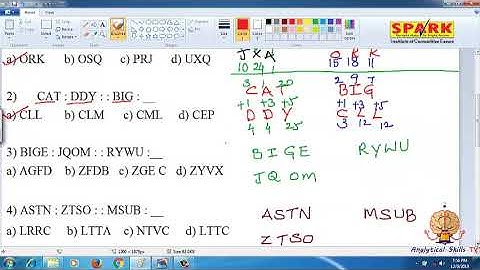 SPARK
a) ORK b) OSQ c) PRJ d) UXQ
J X A
10 24 1
O R K
15 18 11
2) CAT : DDY : : BIG : __
a) CLL b) CLM c) CML d) CEP
3 20
C A T
+1 +3 +5
D D Y
4 4 25
2 9 7
B I G
+1 +3 +5
C L L
3 12 12
3) BIGE : JQOM : : RYWU :__
a) AGFD b) ZFDB c) ZGE C d) ZYVX
B I G E
R Y W U
J Q O M
4) ASTN : ZTSO : : MSUB : __
a) LRRC b) LTTA c) NTVC d) LTTC
A S T N
M S U B
Z T S O
Analytical Skills TV